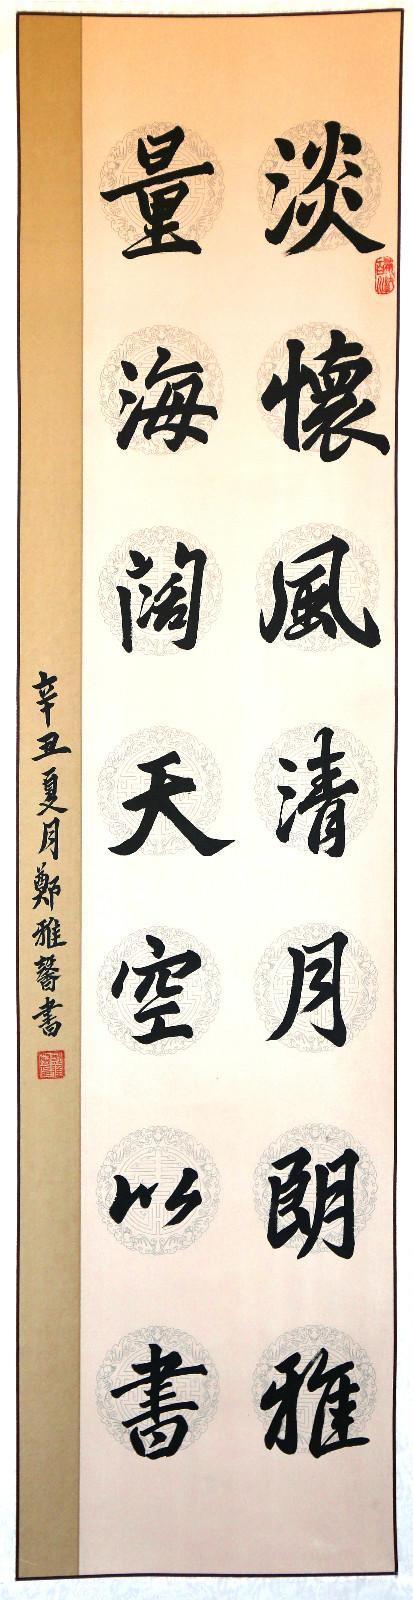 淡懷風清月朗雅
量海阔天空以書
辛丑夏月鄭雅馨書